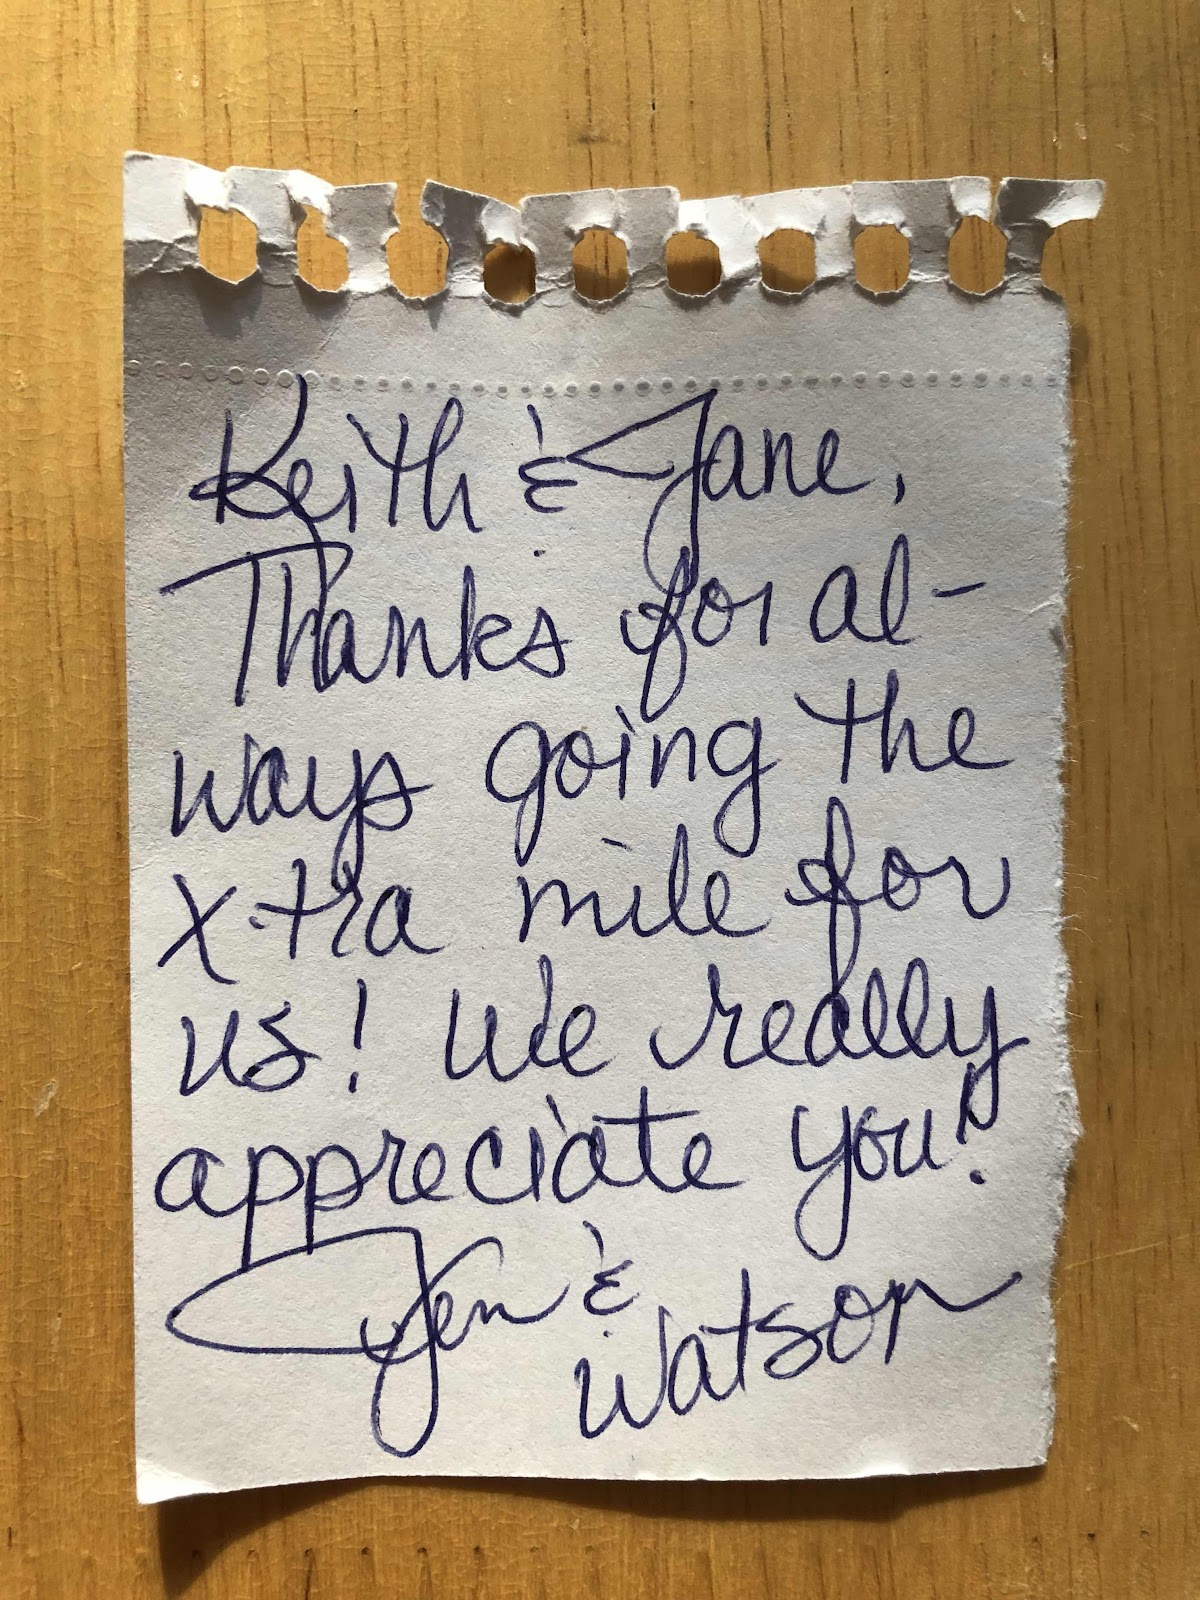 Keith & Jane,
Thanks for al-
ways going the
x-tra mile for
us! We really
appreciate you!
Jen &
Watson